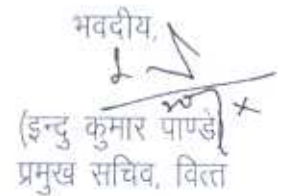 भवदीय,
(इन्दु कुमार पाण्डे)
प्रमुख सचिव, वित्त